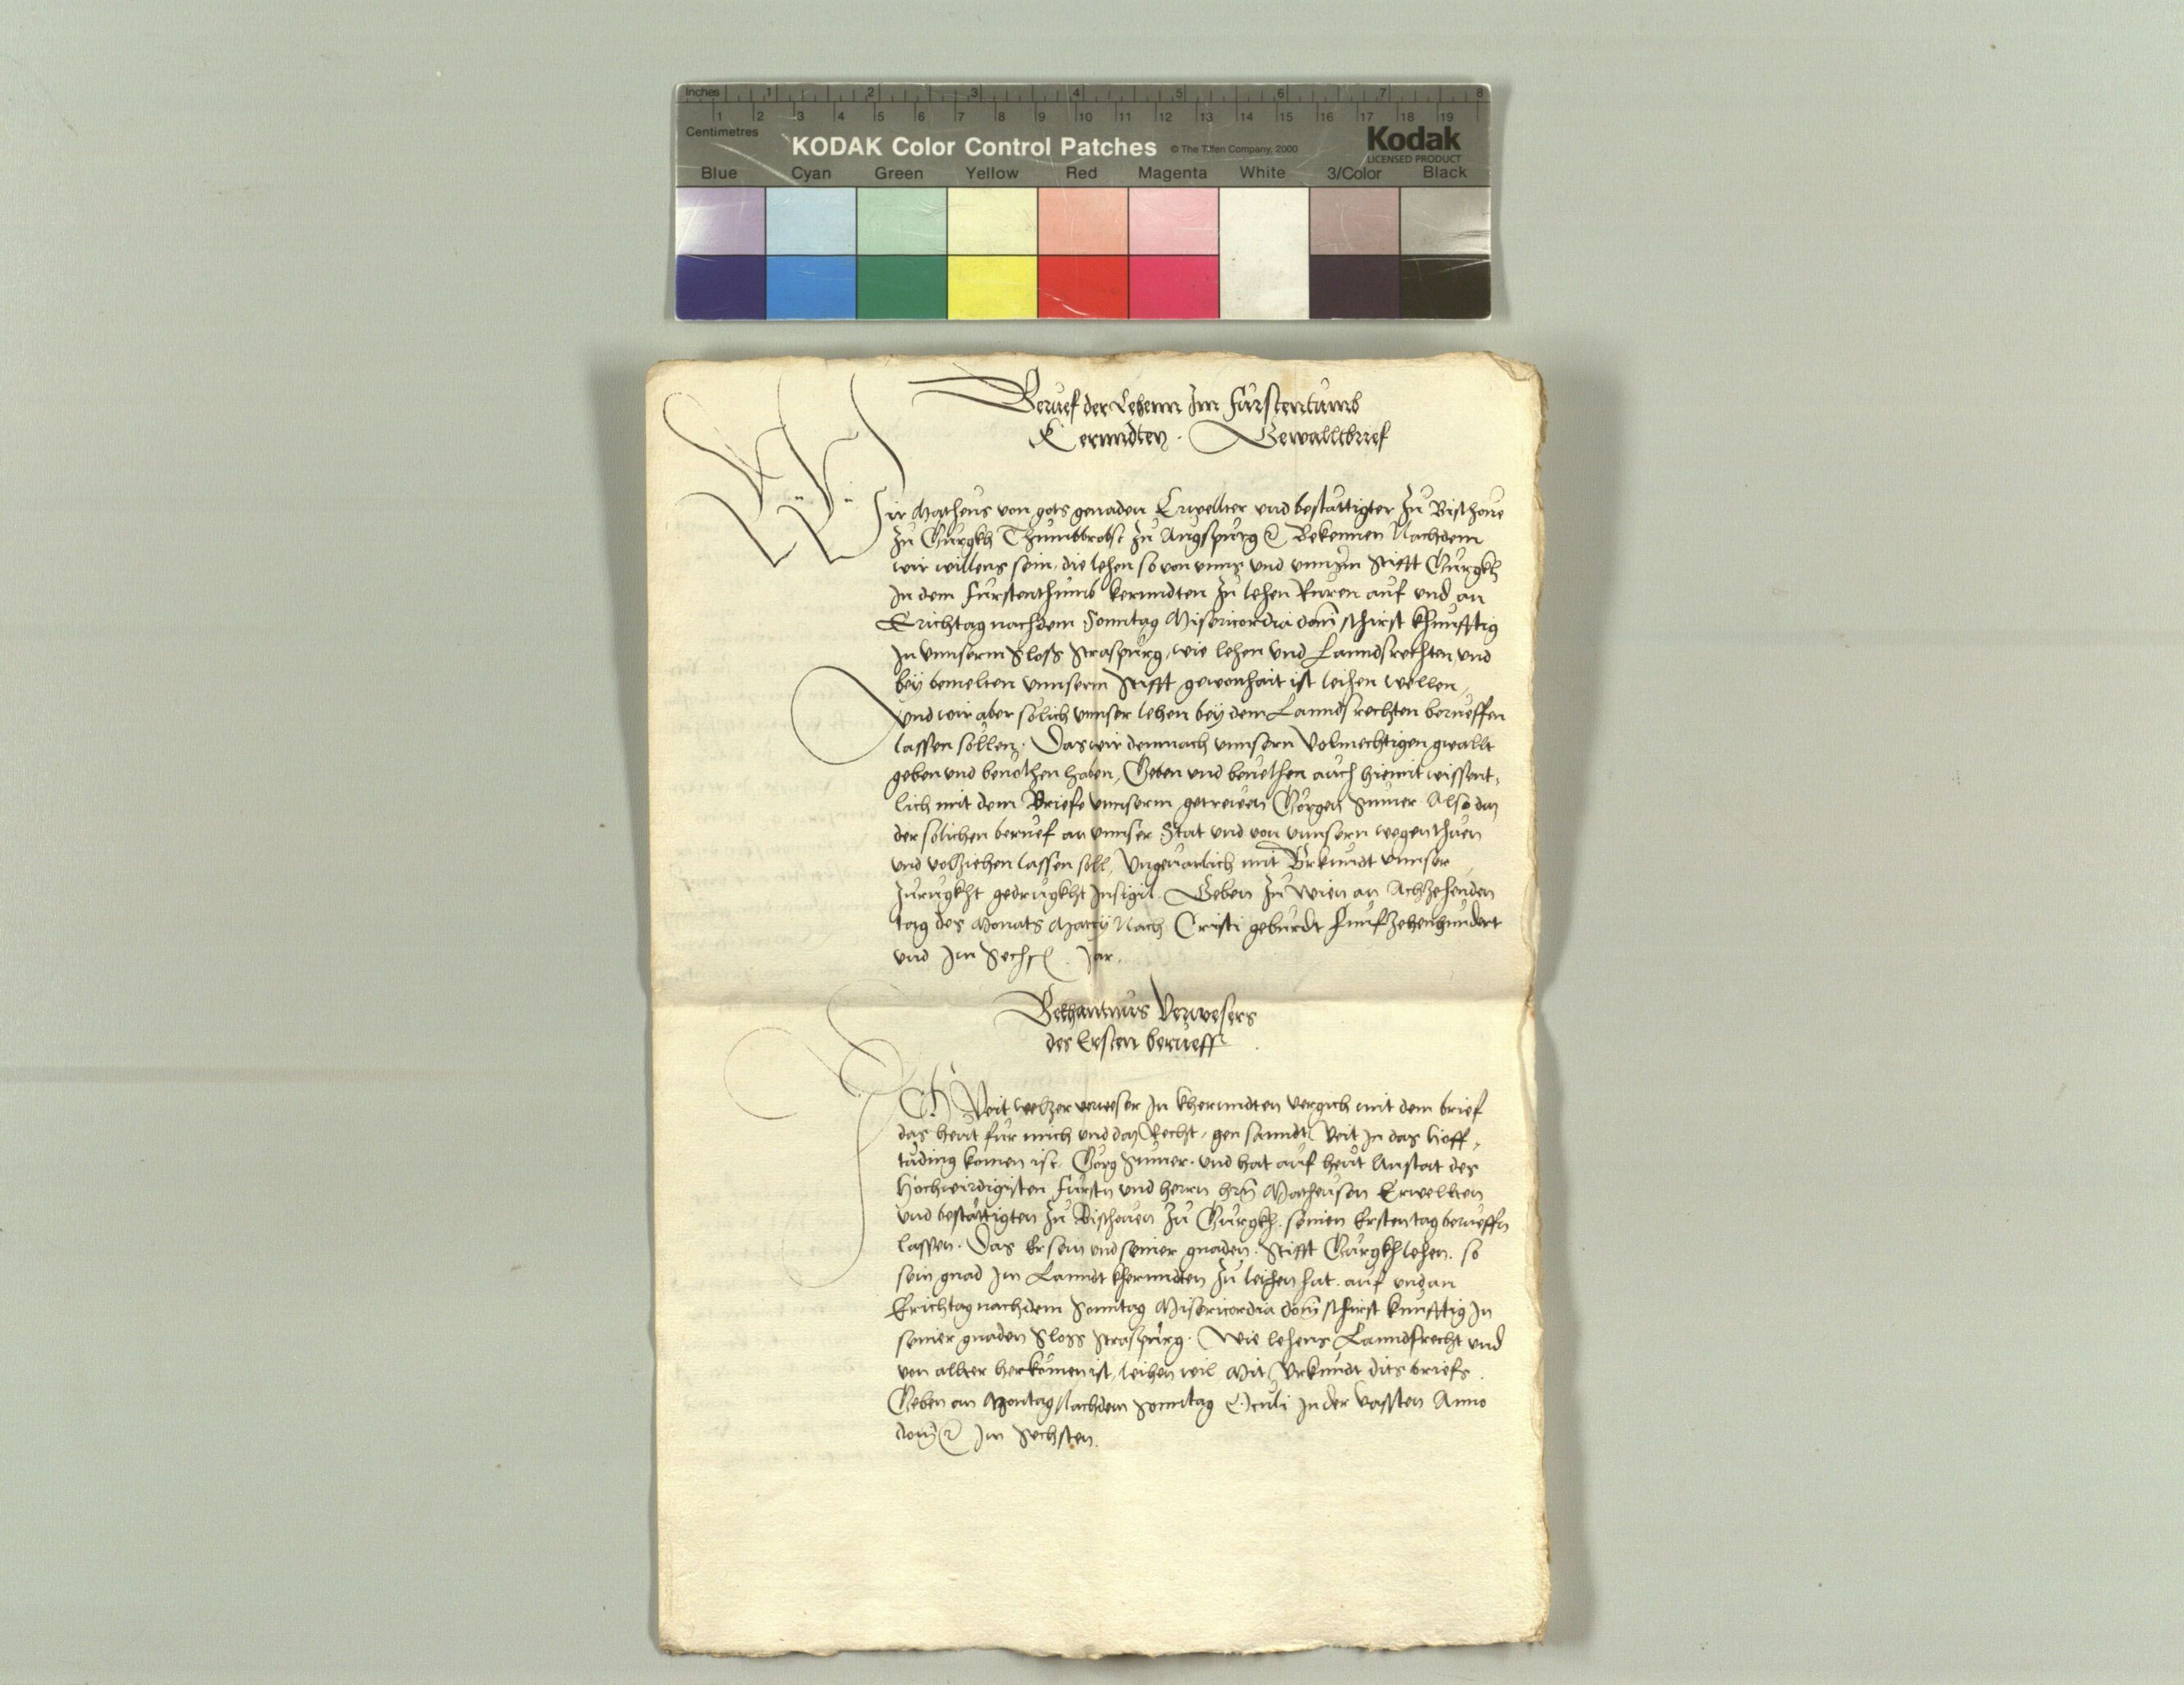 Inches 1 2 3 4 5 6 7 8
1 2 3 4 5 6 7 8 9 10 11 12 13 14 15 16 17 18 19
Centimetres
KODAK Color Control Patches © The Tiffen Company, 2000 Kodak
LICENSED PRODUCT
Blue Cyan Green Yellow Red Magenta White 3/Color Black
Beruef der Lehenn Im Furstentumb
Kernndten. Gewalltbrief
Wir Matheus von gots genaden Erwellter vnd bestättigter Zu Bischoue
Zu Gurgkh Thumbbrobst Zu Augspurg Bekennen Nachdem
wir willens sein, die lehen so von vnns vnd vnnserm Stifft Gurgkh
In dem Furstenthumb kernndten Zu lehen Rueren auf vnd an
Erichtag nach dem Sonntag Misericordia domi schirst khunfftig
In vnnserm Sloss Straspurg, wie lehen vnd Lanndsrechten vnd
bey bemelten vnnserm Stifft gewonhait ist leihen wellen,
Vnd wir aber solich vnnser lehen bey dem Lannds rechten berueffen
lassen sollen. Das wir demnach vnnsern Volmechtigen gwallt
geben vnd beuolhen haben, Geben vnd beuelhen auch hiemit wissent,
lich mit dem Briefe vnnserm getrewen Görgen Also das
der solichen beruef an vnnser Stat vnd von vnnsern wegen thuen
vnd volziehen lassen soll, Vngeuarlich mit Vrkundt vnnser
Zurugkht gedrugkht Insigil. Geben Zu Wien an Achzehenden
tag des Monats Marcij Nach Cristi geburdt Funfzehenhundert
vnd Im Sechsten Jar.
Bekhantnus Verwesers
des Ersten berueff
Ich Veit welzer verweser In khernndten vergich mit dem brief
das heut für mich vnd das Recht, gen sanndt Veit In das hoff,
täding komen ist, Görg vnd hat auf heut Anstat des
Hochwirdigisten Furstn vnd herrn hrn Matheusen Erwellten
vnd bestättigten Zu Bischouen Zu Gurgkh. seinen Ersten tag berueffn
lassen. Das Er sein vnd seiner gnaden. Stifft Gurgkh lehen. so
sein gnad Im Lanndt khernndten Zu leihen hat. auf vnd an
Erichtag nach dem Sonntag Misericordia domi schirst kunfftig In
seiner gnaden Sloss Straspurg. Wie lehens Lanndsrecht vnd
von allter herkomen ist, leihen wil Mit Vrkundt dits briefs.
Geben an Montag Nach dem Sonntag Oculi In der Vassten Anno
domi Im Sechsten.